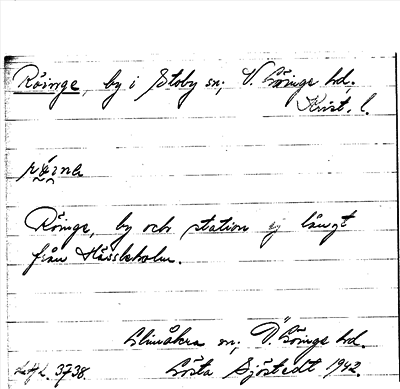 Röinge, by i Stoby sn; V. Göinge hd,
Krist. l.
Röinge, by och station ej långt
från Hässleholm.
Glimåkra sn; Ö. Göinge hd.
3738. Gösta Sjöstedt 1942.